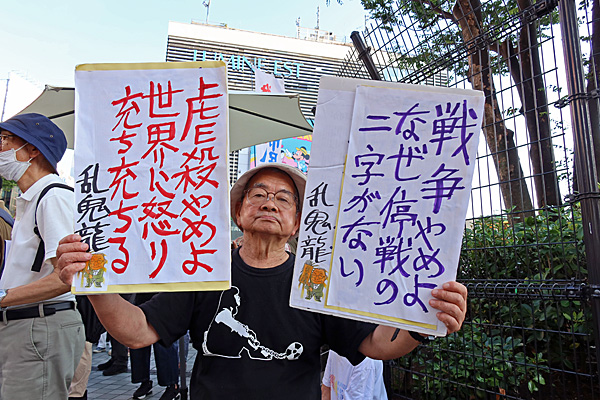 虐殺やめよ
世界に怒り
充ち充ちる
乱鬼龍
戦争やめよ
なぜ停戦の
二字がない
乱鬼龍